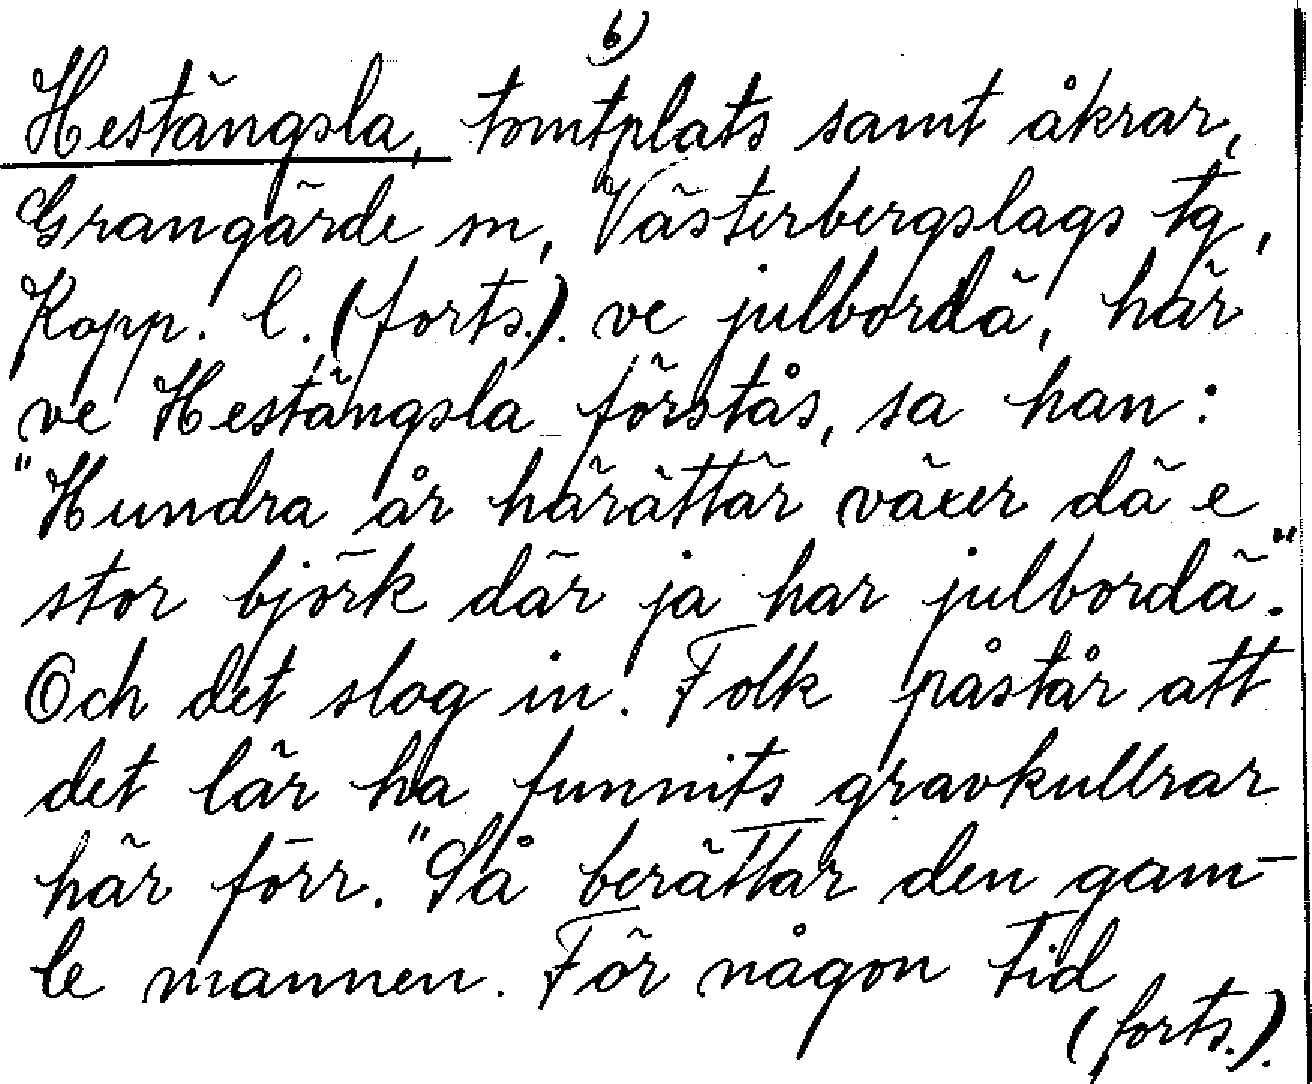 6)
Hestängsla, tomtplats samt åkrar,
Grangärde sn, Västerbergslags tg,
Kopp. l. (forts.). ve julbordä, här
ve Hestängsla förstås, sa han:
"Hundra år härättär växer dä e
stor björk där ja har julbordä."
Och det slog in. Folk påstår att
det lär ha funnits gravkullrar
här förr." Så berättar den gam-
le mannen. För någon tid
(forts.).